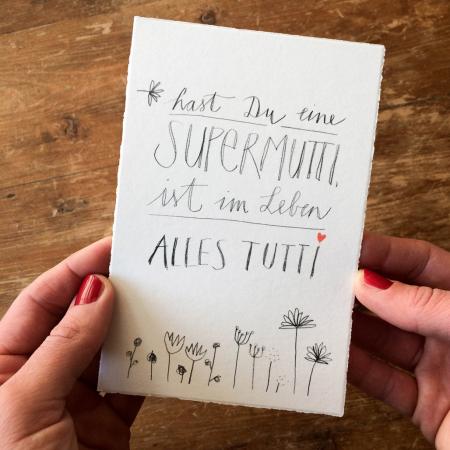 hast Du eine
SUPERMUTTI,
ist im Leben
ALLES TUTTI